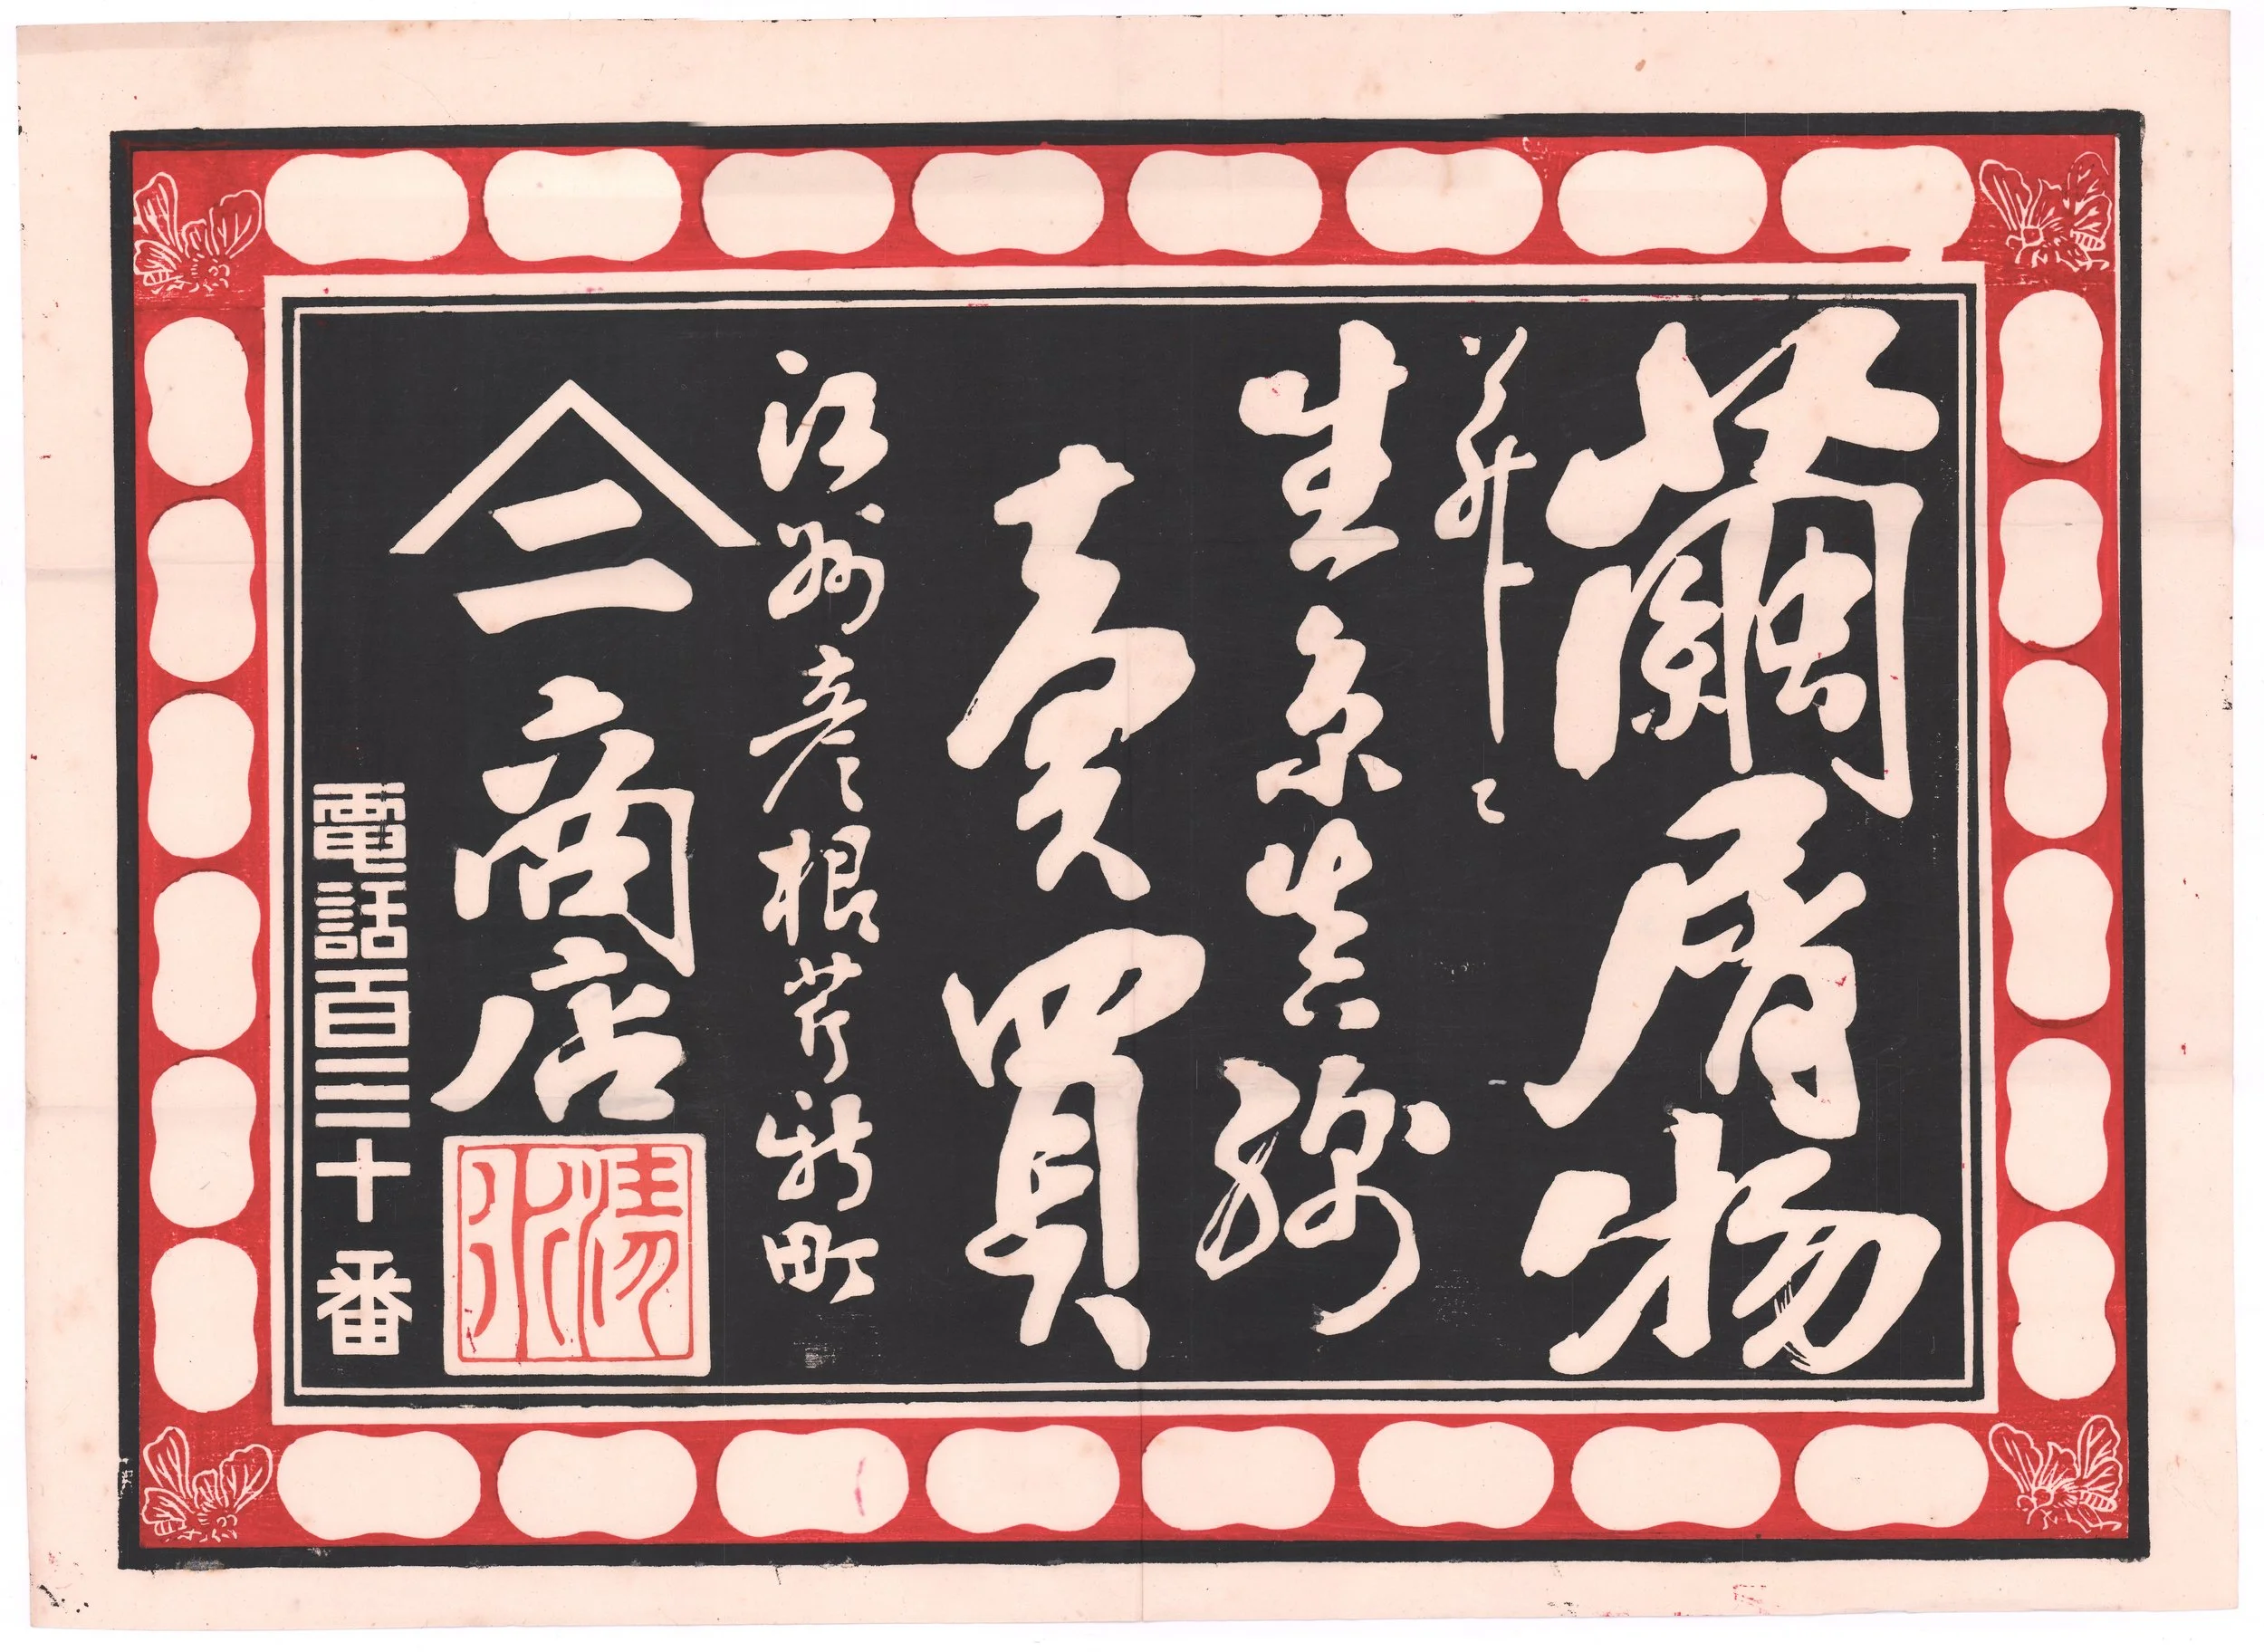 繭屑物
并ニ
生糸真綿
賣買
江州彦根芹新町
二商店
電話百三十番